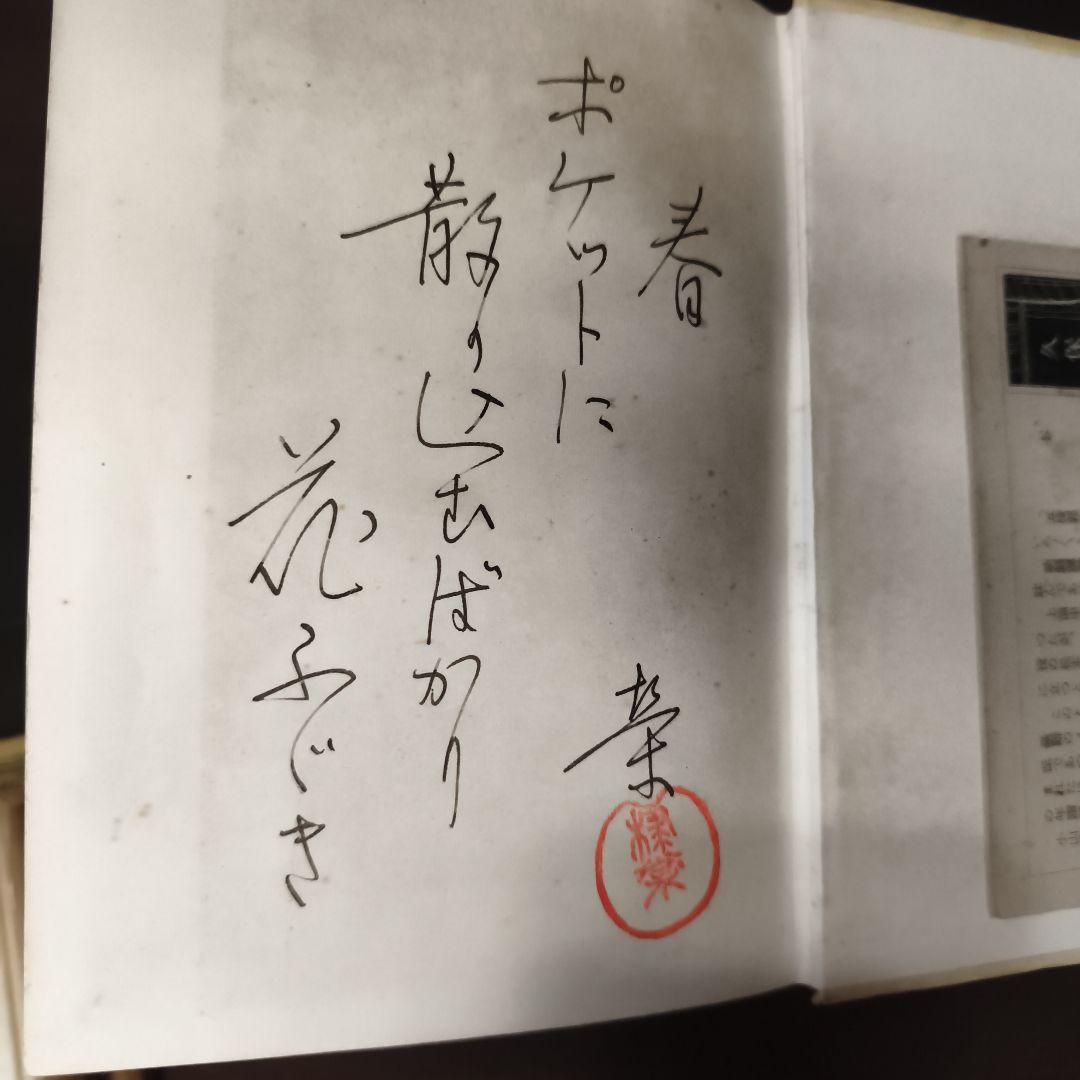 春
ポケットに
散り込むばかり
花ふぶき
栄